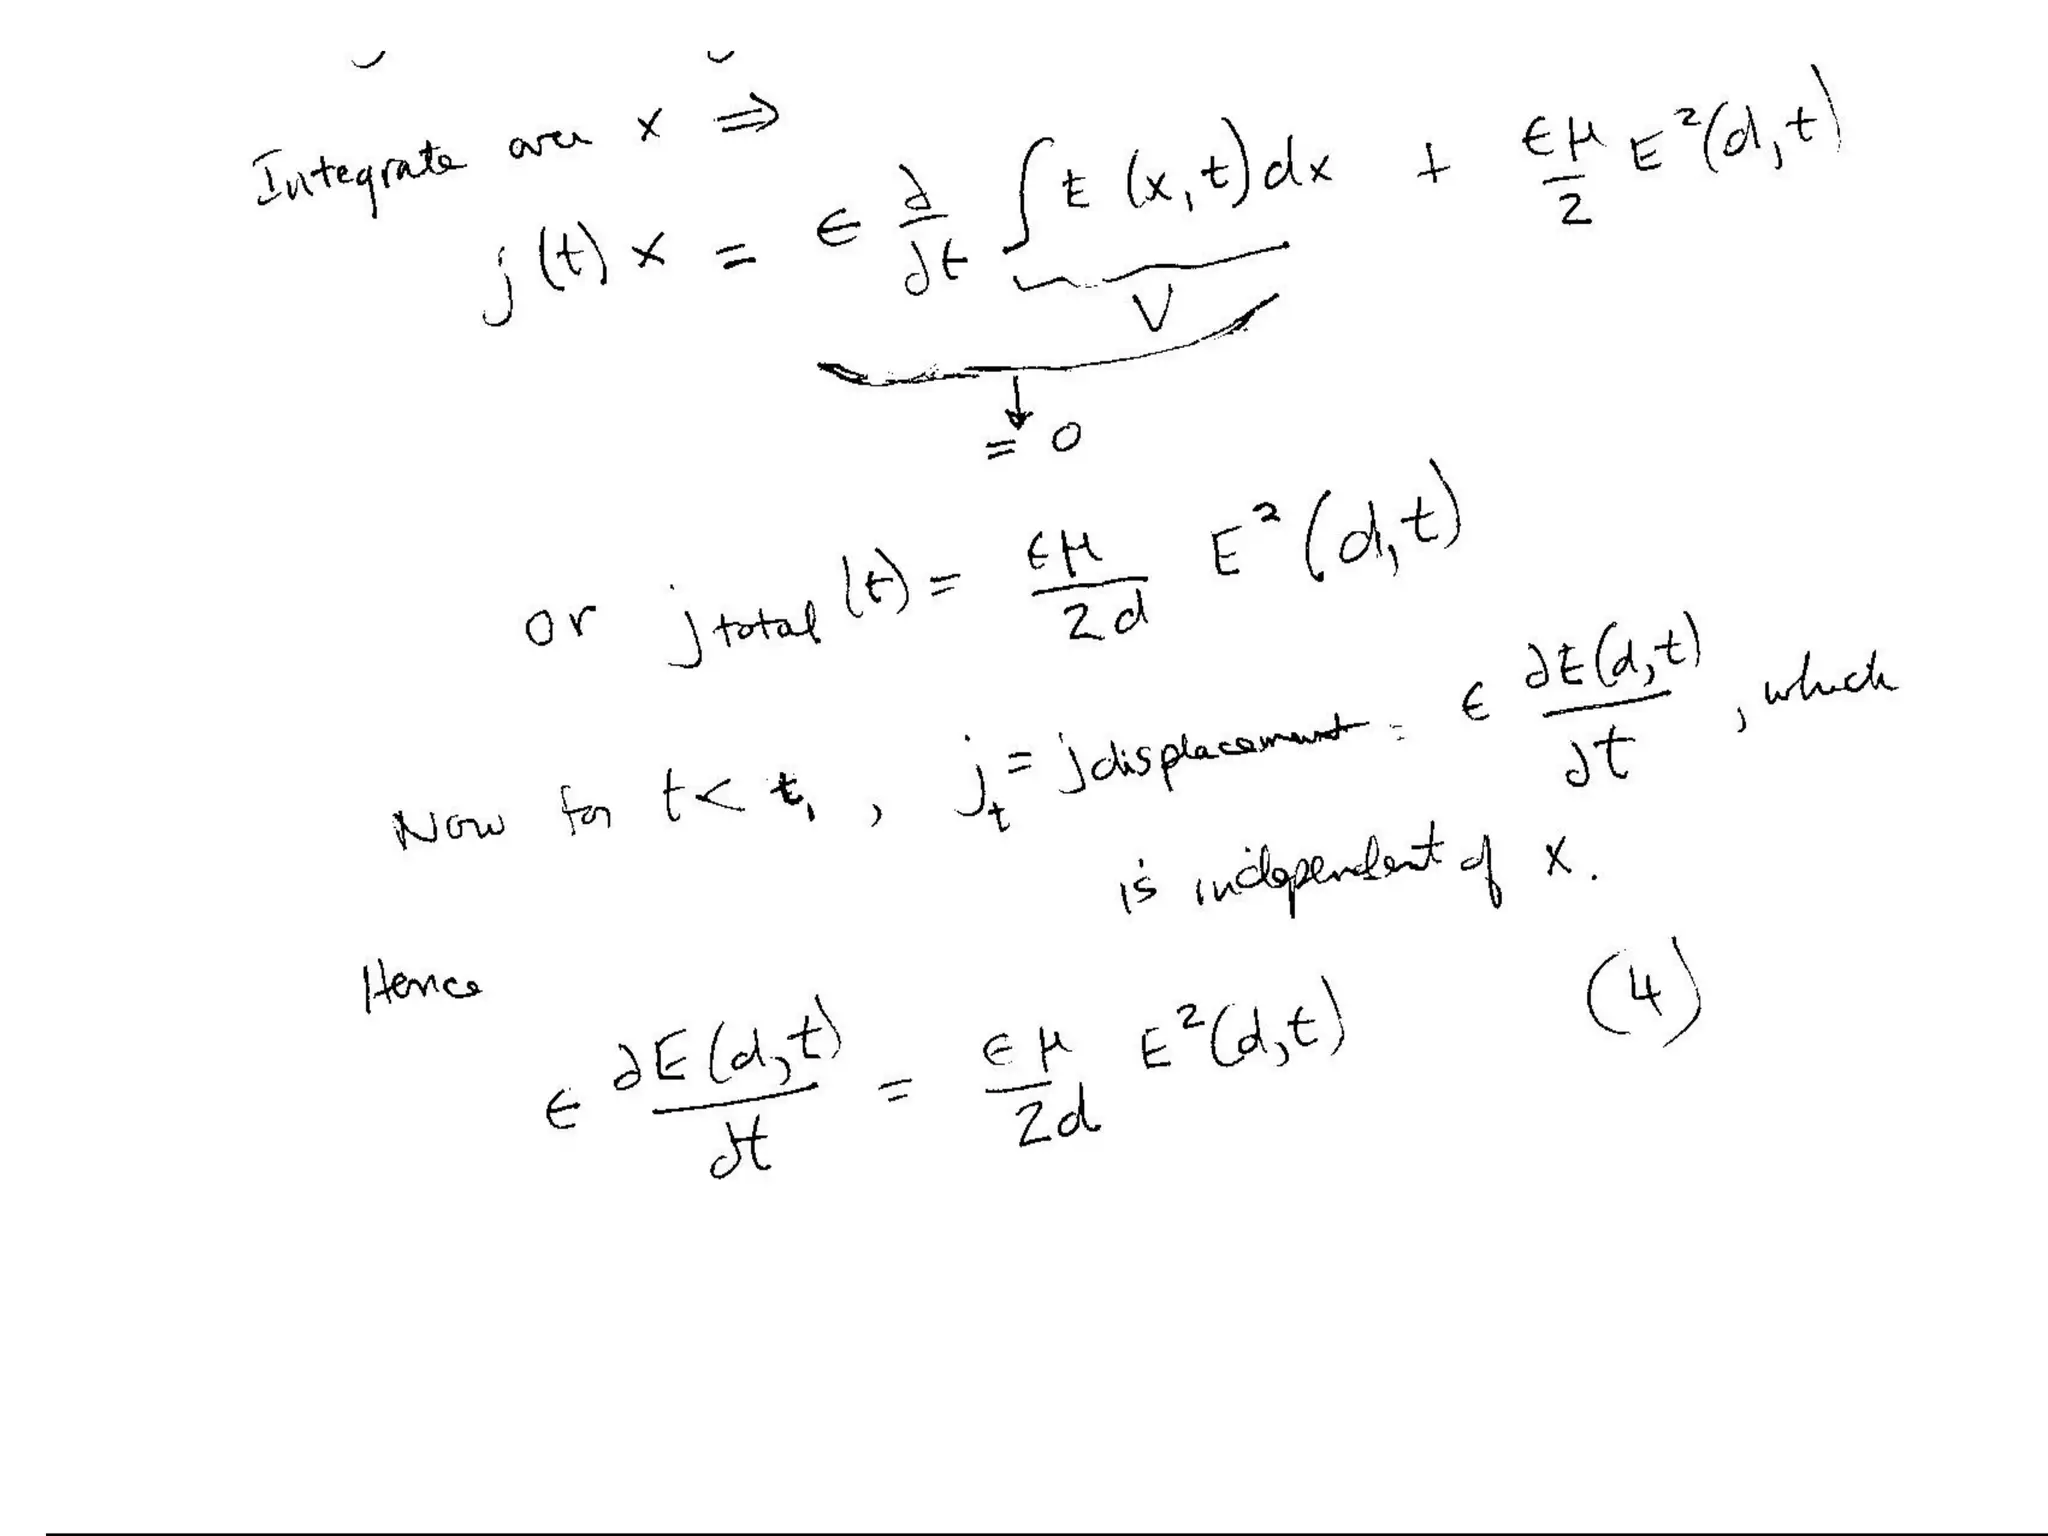 Integrate over x ⇒
j(t) x = ϵ ∂/∂t ∫ E (x,t) dx + ϵμ/2 E²(d,t)
V
= 0
or j total (t) = ϵμ/2d E² (d,t)
Now for t < t₁ , j_t = j displacement = ϵ ∂E(d,t)/∂t , which
is independent of x.
Hence
ϵ ∂E(d,t)/∂t = ϵμ/2d E²(d,t) (4)